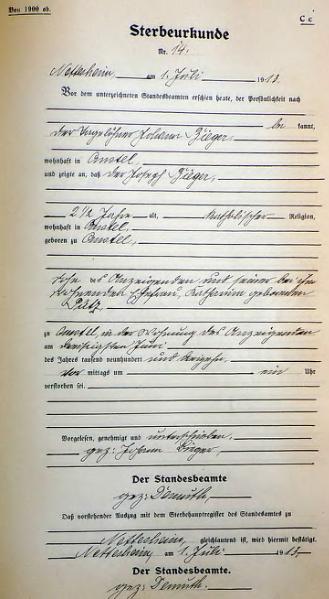 Von 1900 ab.
C c
Sterbeurkunde
Nr. 14.
Nettersheim, am 1. Juli 1913.
Vor dem unterzeichneten Standesbeamten erschien heute, der Persönlichkeit nach
be kannt,
der Tagelöhner Johann
wohnhaft in
und zeigte an, daß der Joseph
2 1/2 Jahre alt, katholischer Religion,
wohnhaft in
geboren zu
Sohn des Anzeigenden und seiner bei ihm
wohnenden Ehefrau, Katharina geborenen
Pütz,
zu in der Wohnung des Anzeigenden
am dreißigsten Juni
des Jahres tausend neunhundert und dreizehn
vor mittags um ein Uhr
verstorben sei.
Vorgelesen, genehmigt und unterschrieben.
gez: Johann
Der Standesbeamte
gez: Demuth.
Daß vorstehender Auszug mit dem Sterbehauptregister des Standesamtes zu
Nettersheim, gleichlautend ist, wird hiermit bestätigt.
Nettersheim, am 1. Juli 1913.
Der Standesbeamte.
gez: Demuth.